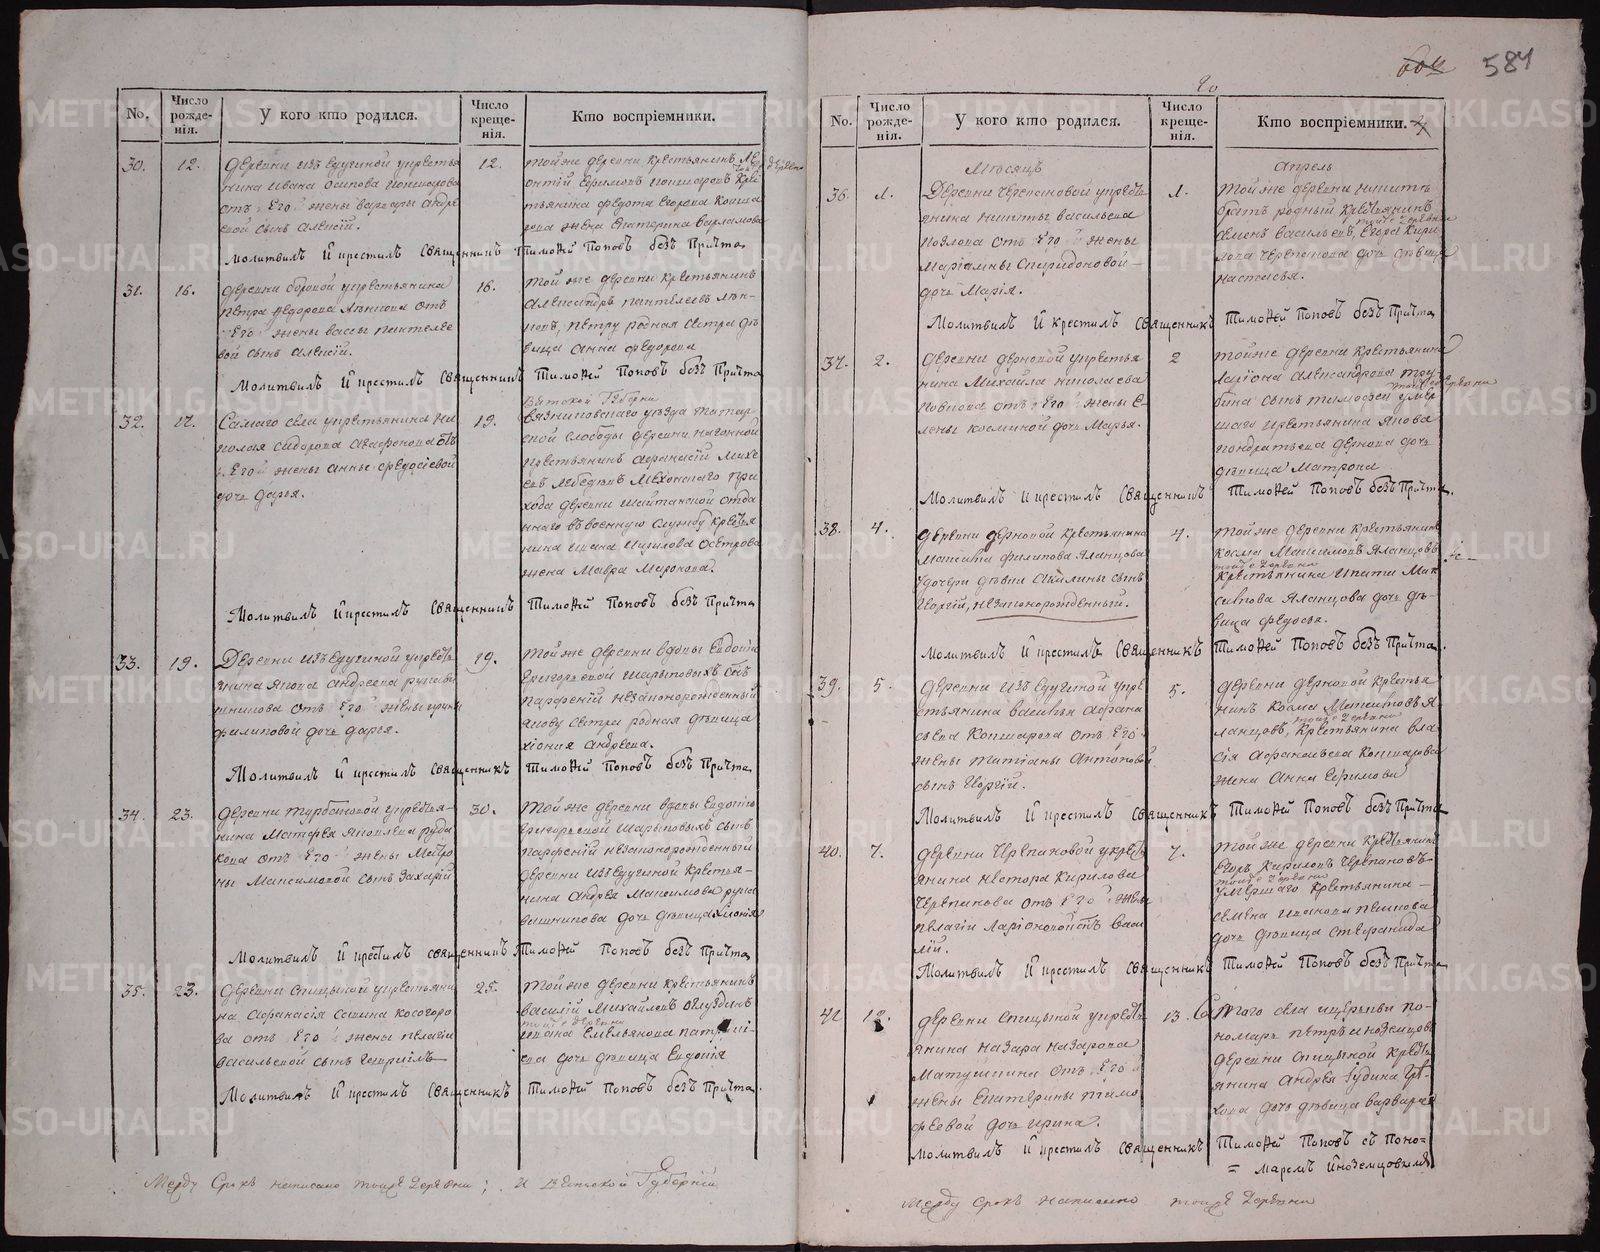 No.
Число рожде-нія.
У кого кто родился.
Число креще-нія.
Кто воспріемники.
30.
12.
12.
отъ Его жены Варвары Андре
евой сынъ Алексій.
Молитвилъ И крестилъ Священникъ Тимоѳей Поповъ безъ Причта
31.
16.
Деревни боровой крестьянина
Петра Федорова
отъ
Его жены Вассы Пантелее
вой сынъ Алексій.
16.
той же деревни крестьянинъ
Александръ Пантелеевъ
Петру родная сестра дѣ
вица Анна Федорова
Молитвилъ И крестилъ Священникъ Тимоѳей Поповъ безъ Причта
32.
17.
Самаго села крестьянина Ни
колая Сидорова
отъ
Его жены Анны Федосіевой
дочь Дарья.
19.
Вятской Губерніи
уѣзда
слободы деревни
крестьянинъ Афанасій Михе
евъ Лебедевъ
при
хода деревни
отда
ннаго въ военную службу крестья
нина Ивана
жена Мавра Миронова.
Молитвилъ И крестилъ Священникъ Тимоѳей Поповъ безъ Причта
33.
19.
Деревни
крестья
нина Якова Андреева рукави
шникова отъ Его жены Ирины
Филиповой дочь Дарья.
19.
той же деревни вдовы Евдокіи
Григорьевой Шарыповыхъ сынъ
Парфеній незаконорожденный
Якову сестра родная дѣвица
Хіонія Андреева.
Молитвилъ И крестилъ Священникъ Тимоѳей Поповъ безъ Причта
34.
23.
Деревни Турбановой крестья-
нина Матфея Яковлева Руда
кова отъ Его жены Матро
ны Максимовой сынъ Захарій
30.
той же деревни вдовы Евдокіи
Григорьевой Шарыповыхъ сынъ
Парфеній незаконорожденный
крестья-
нина Андрея Максимова рука
вишникова дочь дѣвица Хіонія
Молитвилъ И крестилъ Священникъ Тимоѳей Поповъ безъ Причта
35.
23.
Деревни Спицыной крестьяни
на Афанасія
Косогоро
ва отъ Его жены Пелагіи
Васильевой сынъ Гавріилъ
25.
той же деревни крестьянинъ
Василій Михайловъ
тойже деревни
Емельянова
дочь дѣвица Евдокія
Молитвилъ И крестилъ Священникъ Тимоѳей Поповъ безъ Причта.
Между строкъ написано тоиже деревни; И Вятской Губерніи
584
No.
Число рожде-нія.
У кого кто родился.
Число креще-нія.
Кто воспріемники.
Мѣсяцъ
Апрель
36.
1.
Деревни Черепановой крестья
янина Никиты Васильева
Козлова отъ Его жены
Маріамны Спиридоновой
дочь Марія.
1.
той же деревни Никитѣ
братъ родный крестьянинъ
тойже деревни
Семенъ Васильевъ, Егора Кири
лова Черепанова дочь дѣвица
Настасья.
Молитвилъ И крестилъ Священникъ Тимоѳей Поповъ безъ Причта
37.
2.
Деревни Дерновой крестья
нина Михайла Николаева
отъ Его жены Е-
лены Козминой дочь Марья.
2
той же деревни крестьянина
Ларіона Александрова
тойже деревни
сынъ Тимофей умер
шаго крестьянина Якова
Кондратьева Дернова дочь
дѣвица Матрона
Молитвилъ И крестилъ Священникъ Тимоѳей Поповъ безъ Причта.
38.
4.
Деревни Дерновой крестьянина
Максима Филипова Яланцова
у дочери дѣвки Акилины сынъ
Георгій, незаконорожденный.
4.
той же деревни крестьянинъ
Козма Максимовъ Яланцовъ
тойже деревни
крестьянина Ипата Мак
симова Яланцова дочь дѣ-
вица Федосья.
Молитвилъ И крестилъ Священникъ Тимоѳей Поповъ безъ Причта.
39.
5.
Деревни
кре
стьянина Василья Афана
сьева Кокшарова отъ Его
жены Татіаны Антоновой
сынъ Георгій.
5.
деревни Дерновой крестья
нинъ Козма Максимовъ Я
тойже деревни
ланцовъ, крестьянина Вла
сія Афанасьева Кокшарова
жена Анна Ефимова
Молитвилъ И крестилъ Священникъ Тимоѳей Поповъ безъ Причта
40.
7.
деревни Черепановой кресть
янина Нестора Кирилова
Черепанова отъ Его жены
Пелагіи Ларіоновой сынъ Васи
лій.
7.
той же деревни крестьянинъ
Егоръ Кириловъ Черепановъ
тойже деревни
умершаго крестьянина
Семена Иванова
дочь дѣвица Стефанида
Молитвилъ И крестилъ Священникъ Тимоѳей Поповъ безъ Причта
41
12.
деревни Спицыной кресть
янина Назара Назарова
Матушкина отъ Его
жены Екатерины Тимо
феевой дочь Ирина.
13.
Того села церкви по-
номарь Петръ Иноземцовъ
деревни Спицыной кресть
янина Андрея
дочь дѣвица Варвара
Молитвилъ И крестилъ Священникъ Тимоѳей Поповъ съ Поно=
= маремъ Иноземцовымъ
Между строкъ написано тоиже деревни
METRIKI.GASO-URAL.RU